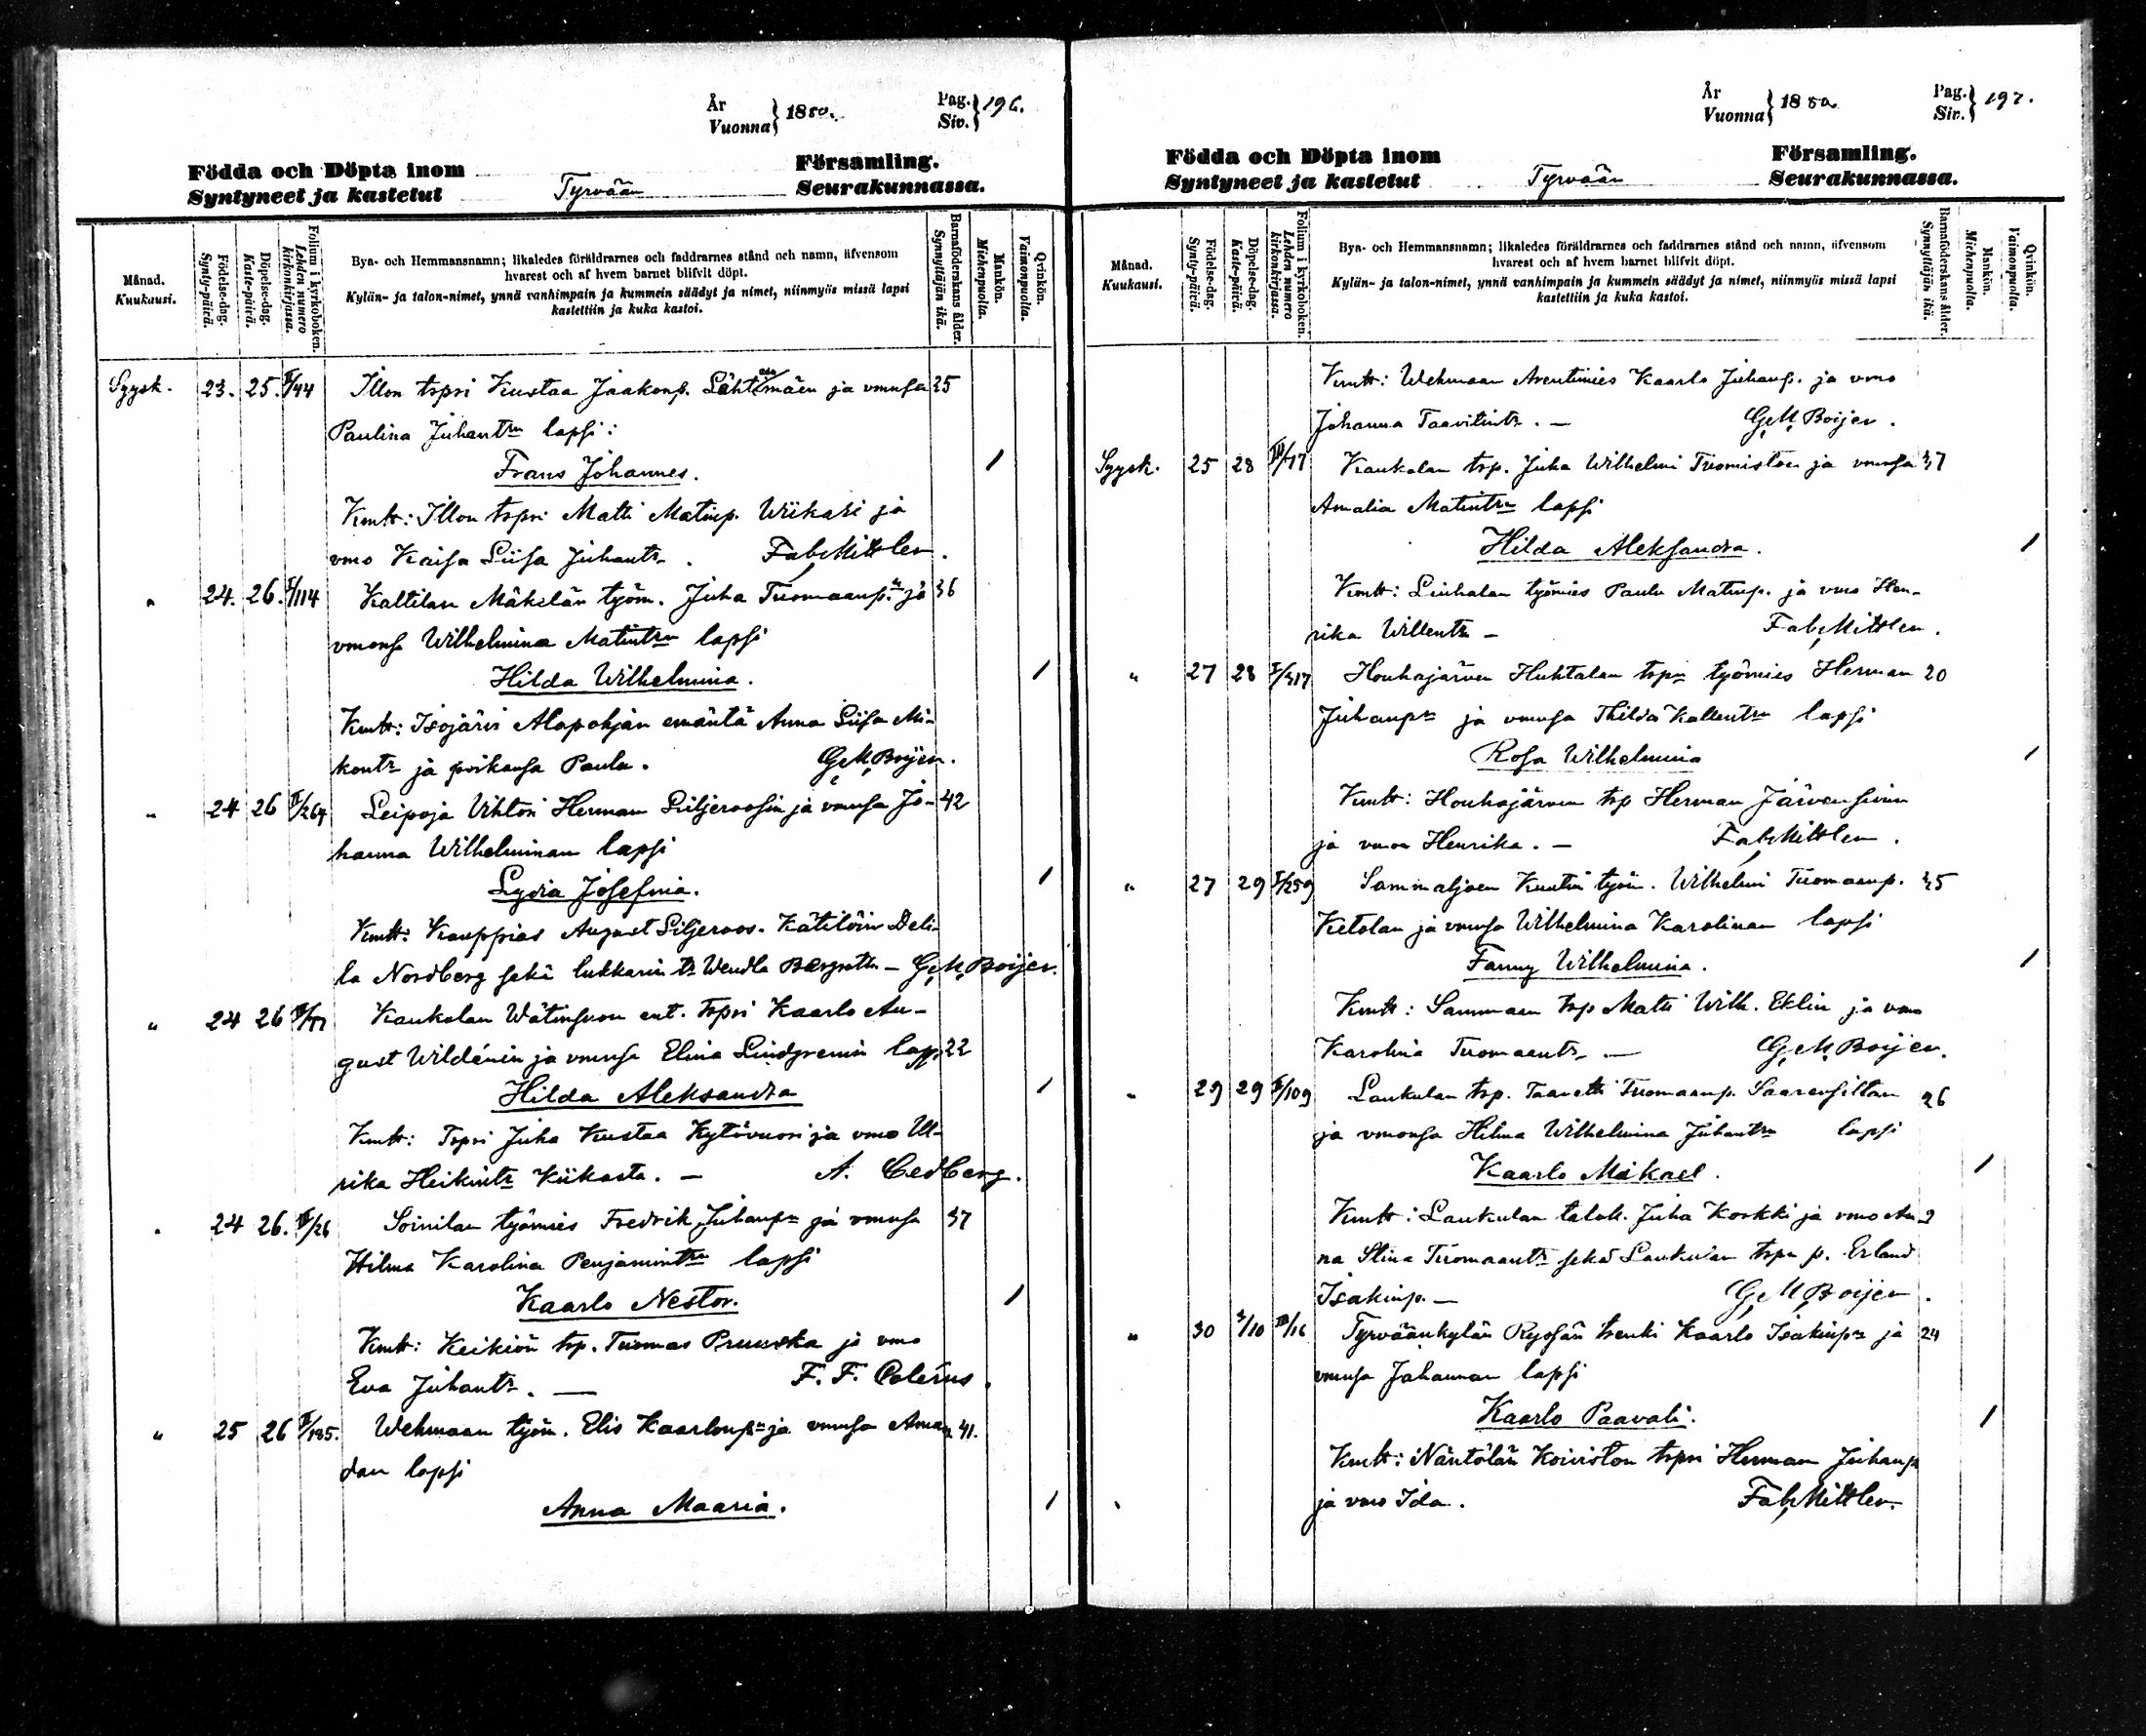 År
Vuonna } 1880.
Pag.
Siv. } 196.
Födda och Döpta inom
Syntyneet ja kastetut
Tyrvään
Församling.
Seurakunnassa.
Månad.
Kuukausi.
Födelse-dag.
Synty-päivä.
Döpelse-dag.
Kaste-päivä.
Folium i kyrkoboken.
Lehden numero kirkonkirjassa.
Bya- och Hemmansnamn; likaledes föräldrarnes och faddrarnes stånd och namn, äfvensom
hvarest och af hvem barnet blifvit döpt.
Kylän- ja talon-nimet, ynnä vanhimpain ja kummein säädyt ja nimet, niinmyös missä lapsi
kastettiin ja kuka kastoi.
Barnaföderskans ålder.
Synnyttäjän ikä.
Mankön.
Miehenpuolta.
Qvinkön.
Vaimonpuolta.
Syysk. 23. 25. Illon tspri Kustaa Jaakonp. ja vmnsa 25
Paulina Juhantrn lapsi:
Frans Johannes. /
Kmtt: Illon tspri Matti Matinp. Wiikari ja
vmo Kaisa Liisa Juhantr. Fab. Mittler.
" 24. 26. I/114 Kaltilan Mäkelän työm. Juha Tuomaanp.n ja 36
vmonsa Wilhelmina Matintrn lapsi
Hilda Wilhelmina. /
Kmtt: Isojärvi Alapohjan emäntä Anna Liisa Mi-
kontr ja poikansa Paulu. G. M. Boijer.
" 24 26 II/264 Leipoja Vihtori Herman Liljeroosin ja vmnsa Jo- 42
hanna Wilhelminan lapsi
Lydia Josefina. /
Kmtt: Kauppias August Liljeroos. Kätilöin Deli-
la Nordberg sekä lukkarin tr Wendla G. M. Boijer.
" 24 26 Kaukolan ent. tspri Kaarlo Au-
gust Wildénin ja vmnsa Elina Lindgrenin laps 22
Hilda Aleksandra /
Kmtt: Tspri Juha Kustaa Kytövuori ja vmo Ul-
rika Heikintr Kiikasta. — A. Cedberg.
" 24 26. III/26 Soinilan työmies Fredrik Juhanpn ja vmnsa 37
Hilma Karolina Penjamintrn lapsi
Kaarlo Nestor. /
Kmtt: Keikiön tsp. Tuomas Pruuska ja vmo
Eva Juhantr. — F. F. Colérus.
" 25 26 II/185. Wehmaan työm. Elis Kaarlonpn ja vmnsa Aman 41.
dan lapsi
Anna Maaria. /
År
Vuonna } 1880.
Pag.
Siv. } 197.
Födda och Döpta inom
Syntyneet ja kastetut
Tyrvään
Församling.
Seurakunnassa.
Månad.
Kuukausi.
Födelse-dag.
Synty-päivä.
Döpelse-dag.
Kaste-päivä.
Folium i kyrkoboken.
Lehden numero kirkonkirjassa.
Bya- och Hemmansnamn; likaledes föräldrarnes och faddrarnes stånd och namn, äfvensom
hvarest och af hvem barnet blifvit döpt.
Kylän- ja talon-nimet, ynnä vanhimpain ja kummein säädyt ja nimet, niinmyös missä lapsi
kastettiin ja kuka kastoi.
Barnaföderskans ålder.
Synnyttäjän ikä.
Mankön.
Miehenpuolta.
Qvinkön.
Vaimonpuolta.
Kmtt: Wehmaan Arentimies Kaarlo Juhanp. ja vmo
Johanna Taavitintr. — G. M. Boijer.
Syysk. 25 28 Kaukolan tsp. Juha Wilhelmi Tuomiston ja vmnsa 37
Amalia Matintrn lapsi
Hilda Aleksandra. /
Kmtt: Liuhalan työmies Paulu Matinp. ja vmo Hen-
rika Willentr — Fab. Mittler.
" 27 28 I/317 Houhajärven Huhtalan tspn työmies Herman 20
Juhanpn ja vmnsa Thilda Kallentrn lapsi
Rosa Wilhelmina /
Kmtt: Houhajärven tsp Herman Järvensivun
ja vmon Henrika. — Fab. Mittler.
" 27 29 I/259 Sammaljoen Kuutin työm. Wilhelmi Tuomaanp. 35
Ketolan ja vmnsa Wilhelmina Karolinan lapsi
Fanny Wilhelmina. /
Kmtt: Sammaen tsp Matti Wilh. Eklin ja vmo
Karolina Tuomaantr — G. M. Boijer.
" 29 29 II/109 Laukulan tsp. Taavetti Tuomaanp. Saarensiltan 26
ja vmonsa Hilma Wilhelmina Juhantrn lapsi
Kaarlo Mikael. /
Kmtt: Laukulan talok. Juha Korkki ja vmo An-
na Stina Tuomaantr sekä Laukulan tspn p. Erland
Isakinp. — G. M. Boijer.
" 30 3/10 III/16 Tyrväänkylän Ryssän trenki Kaarlo Isakinpn ja 24
vmnsa Johannan lapsi
Kaarlo Paavali. /
Kmtt: Näntölän Koiviston tspri Herman Juhanp
ja vmo Ida. Fab. Mittler.